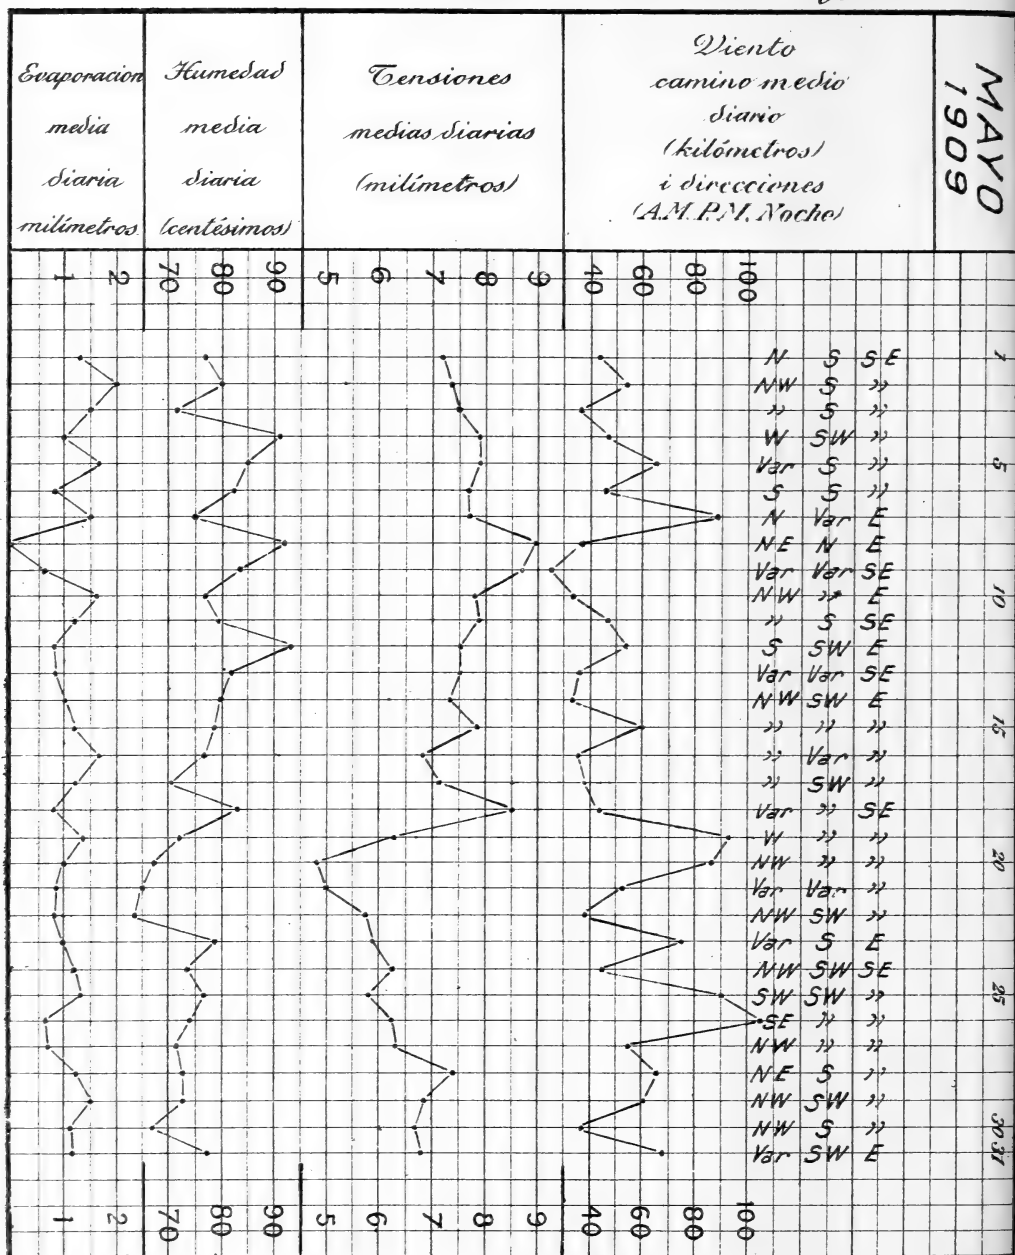 Evaporacion
media
diaria
milímetros
Humedad
media
diaria
(centésimos)
Tensiones
medias diarias
(milímetros)
Viento
camino medio
diario
(kilómetros)
i direcciones
(A.M. P.M. Noche)
MAYO
1909
1 2 70 80 90 5 6 7 8 9 40 60 80 100
N S SE 1
NW S ”
” S ”
W SW ”
Var S ” 5
S S ”
N Var E
NE N E
Var Var SE
NW ” E 10
” S SE
S SW E
Var Var SE
NW SW E
” ” ” 15
” Var ”
” SW ”
Var ” SE
W ” ”
NW ” ” 20
Var Var ”
NW SW ”
Var S E
NW SW SE
SW SW ” 25
SE ” ”
NW ” ”
NE S ”
NW SW ”
NW S ” 30
Var SW E 31
1 2 70 80 90 5 6 7 8 9 40 60 80 100